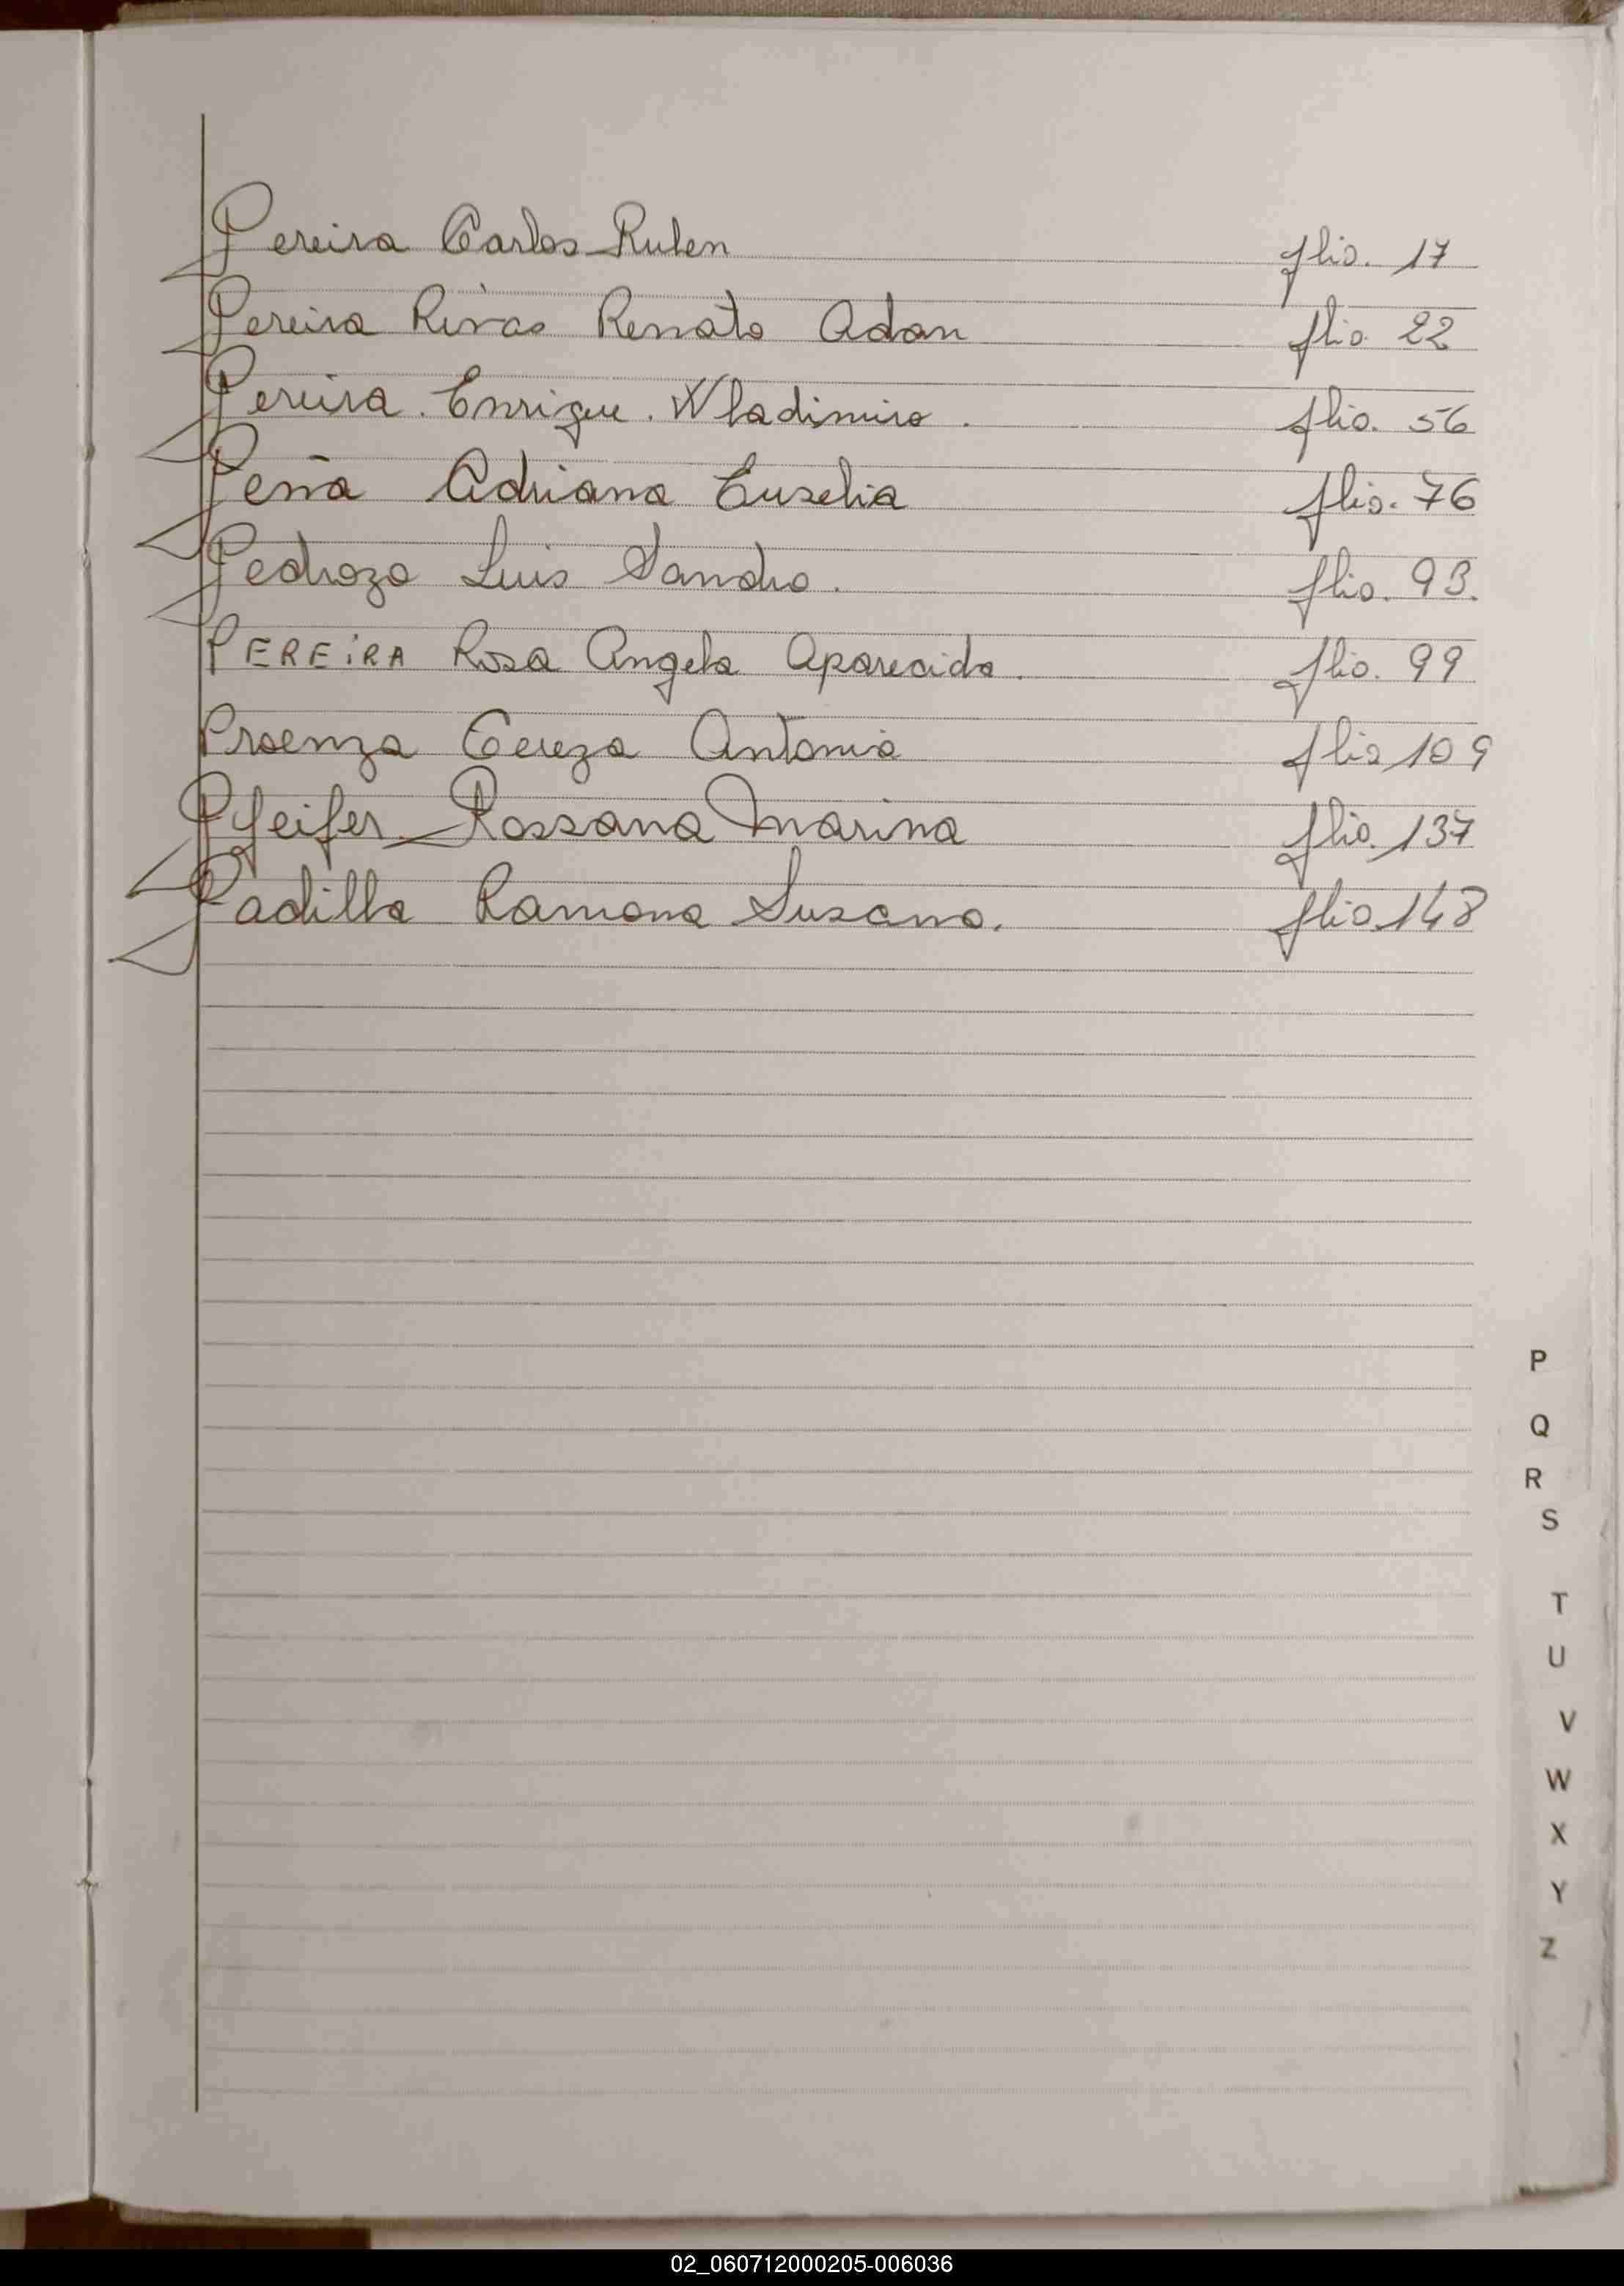 Pereira Carlos Ruben flio. 17
Pereira Rivas Renato Adan flio. 22
Pereira. Enrique. Wladimiro. flio. 56
Peña Adriana Euselia flio. 76
Pedrozo Luis Sandro. flio. 93.
PEREiRA Rosa Angela Aparecida. flio. 99
Proenza Tereza Antonia flio 109
Pfeifer Rossana Marina flio. 137
Padilla Ramona Susana. flio. 148
P
Q
R
S
T
U
V
W
X
Y
Z
02_060712000205-006036